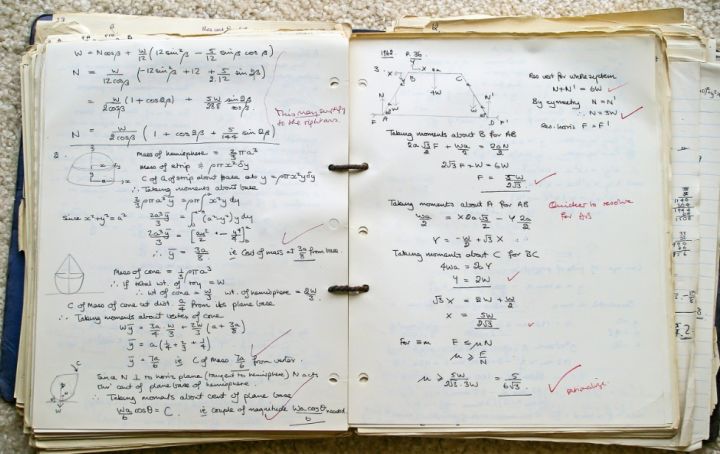 W = Ncosβ + W/12 (12 sin²β - 5/12 sinβ cosβ)
N = W/12cosβ (-12sin²β + 12 + 5/2.12 sin2β)
= W/2cosβ (1 + cos2β) + 5W/288 sin2β/cosβ
This may simplify
to the right ans.
N = W/2cosβ (1 + cos2β + 5/144 sin2β)
8.
Mass of hemisphere = 2/3 ρπa³
Mass of strip = ρπx²δy
C of G of strip about base at y = ρπx²yδy
∴ Taking moments about base
2/3 ρπa³ȳ = ρπ∫x²y dy
Since x²+y²=a²
2a³/3 ȳ = ∫(a²-y²)y dy
2a³ȳ/3 = [ay²/2 - y⁴/4]
∴ ȳ = 3a/8 ie C of mass at 3a/8 from base.
Mass of cone = 1/3 ρπa³
∴ If total wt. of toy = W
∴ wt of cone = W/3 wt. of hemisphere = 2W/3
C of Mass of cone at dist a/4 from its plane base
∴ Taking moments about vertex of cone
Wȳ = 3a/4 . W/3 + 2W/3 (a + 3a/8)
ȳ = a(1/4 + 2/3 + 1/4)
ȳ = 7a/6 is C of mass 7a/6 from vertex.
Since N ⊥ to horiz plane (tangent to hemisphere) N acts
thro' cent of plane base of hemisphere.
∴ Taking moments about cent of plane base
Wa/6 cosθ = C. ie couple of magnitude Wa cosθ/6 needed.
1962. P. 36.
3.
Y X B C
4W
N N'
F A W W D F'
Res vert for whole system
N+N' = 6W
By symmetry N = N'
∴ N = 3W
Res. horiz F = F'
Taking moments about B for AB
2a√3/2 F + Wa/2 = 2aN/2
2√3F + W = 6W
F = 5W/2√3
Taking moments about A for AB
Quicker to resolve
for AB
Wa/2 = X2a√3/2 - Y2a/2
Y = -W/2 + √3 X
Taking moments about C for BC
4Wa = 2aY
Y = 2W
√3 X = 2W + W/2
X = 5W/2√3
For Eqm F ≤ μN
μ ≥ F/N
μ ≥ 5W/2√3.3W = 5/6√3